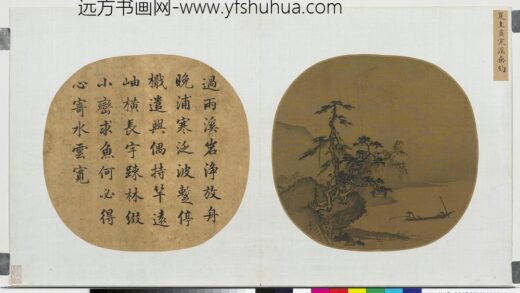 远方书画网-www.yfshuhua.com
夏圭寒溪垂釣
過雨溪岩淨放舟
晚浦寒泛波暫停
檝遣興偶持竿遠
岫橫長宇疎林綴
小巒求魚何必得
心寄水雲寬